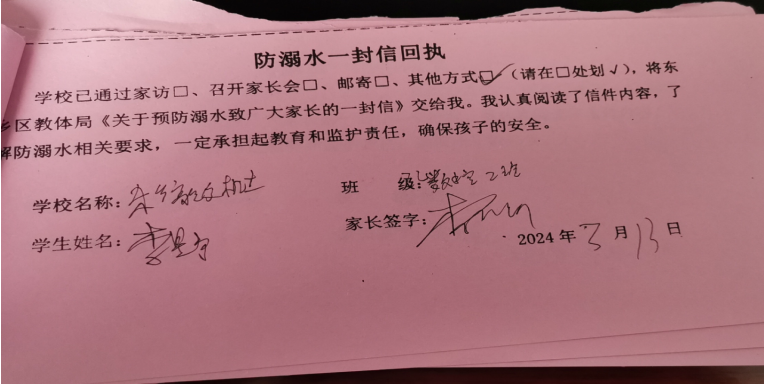 防溺水一封信回执
学校已通过家访□、召开家长会□、邮寄□、其他方式☑（请在□处划√），将东
乡区教体局《关于预防溺水致广大家长的一封信》交给我。我认真阅读了信件内容，了
解防溺水相关要求，一定承担起教育和监护责任，确保孩子的安全。
学校名称： 班 级：
学生姓名： 家长签字：
2024年3月13日